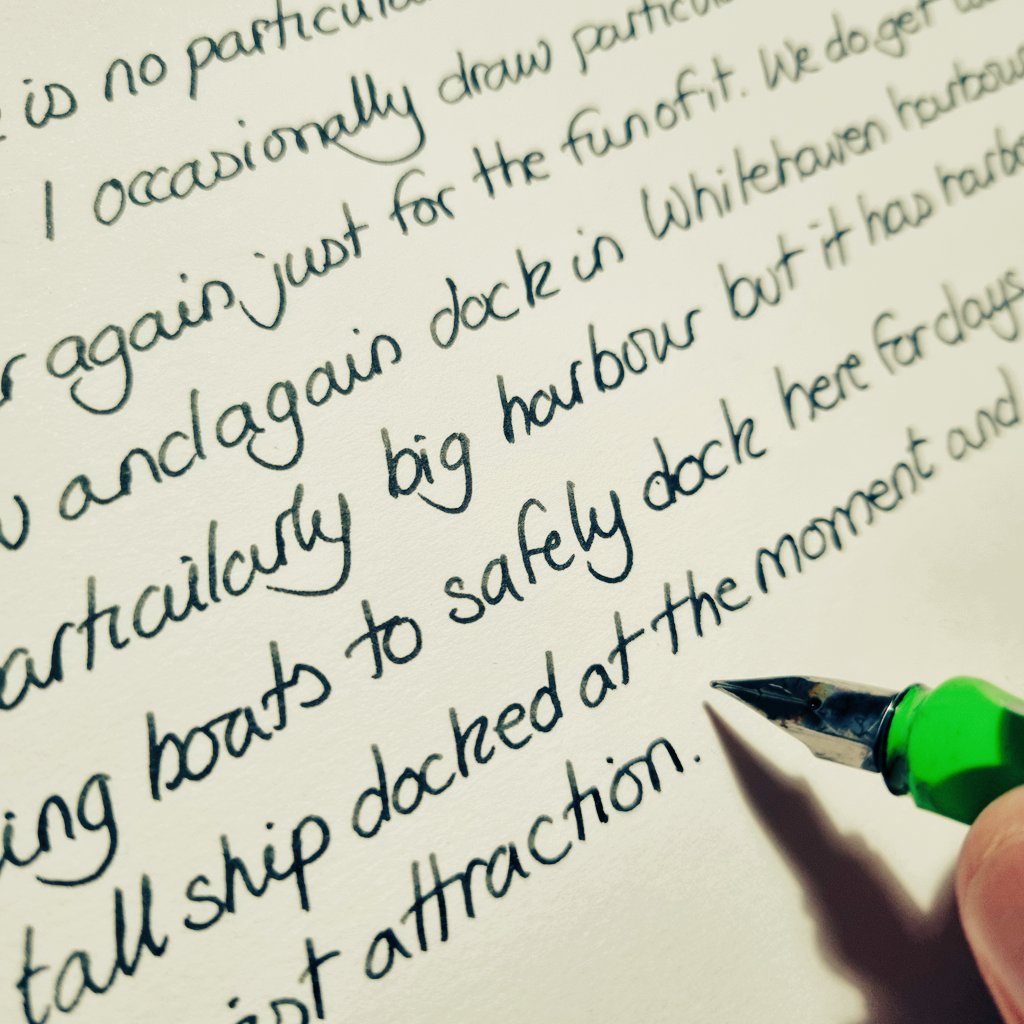 is no particula
I occasionally draw particu
r again just for the fun of it. We do get
and again dock in Whitehaven harbour
articularly big harbour but it has harbo
ing boats to safely dock here for days
tall ship docked at the moment and
ist attraction.